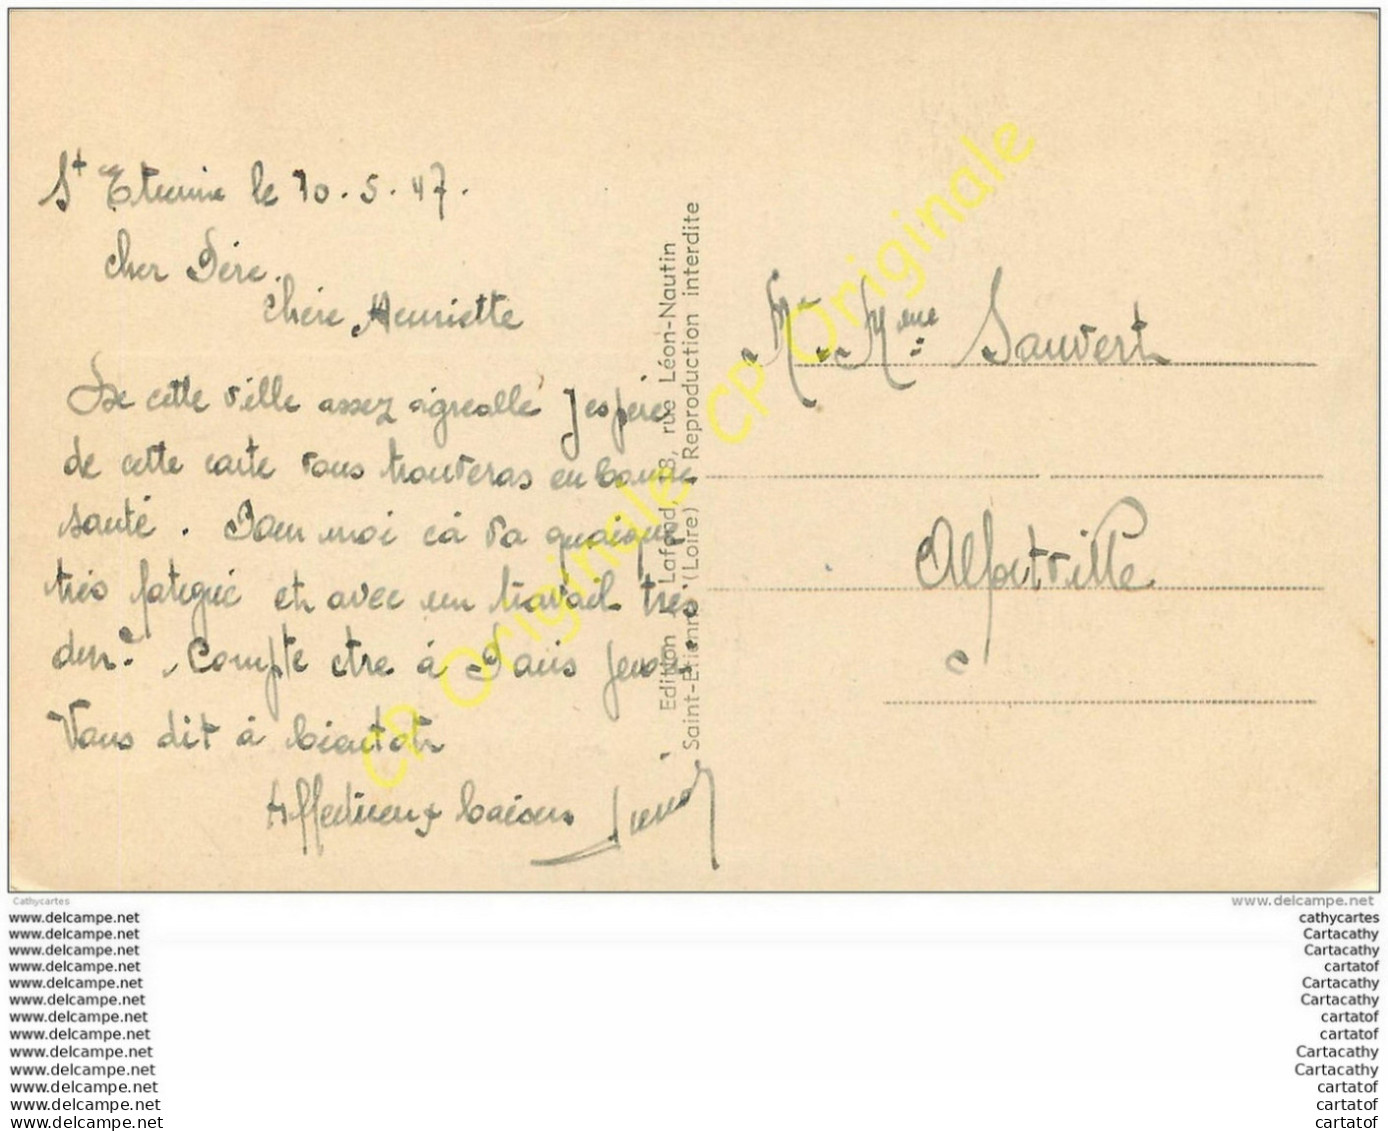 St Etienne le 10.5.47.
Cher Père.
Chère Henriette
De cette ville assez agréable J'espère
de cette carte vous trouveras en bonne
santé. Pour moi cà va quoique
très fatigué et avec un travail très
dur. Compte etre à Paris jeudi.
Vous dit à bientot
Affectueux baisers
Edition J. Lafond, 3, rue Léon-Nautin
Saint-Etienne (Loire) Reproduction interdite
Mr. Mme Sauvert
Alfortville
CP Originale CP Originale
Cathycartes
www.delcampe.net
www.delcampe.net
www.delcampe.net
www.delcampe.net
www.delcampe.net
www.delcampe.net
www.delcampe.net
www.delcampe.net
www.delcampe.net
www.delcampe.net
www.delcampe.net
www.delcampe.net
www.delcampe.net
www.delcampe.net
cathycartes
Cartacathy
Cartacathy
cartatof
Cartacathy
Cartacathy
cartatof
cartatof
Cartacathy
Cartacathy
cartatof
cartatof
cartatof